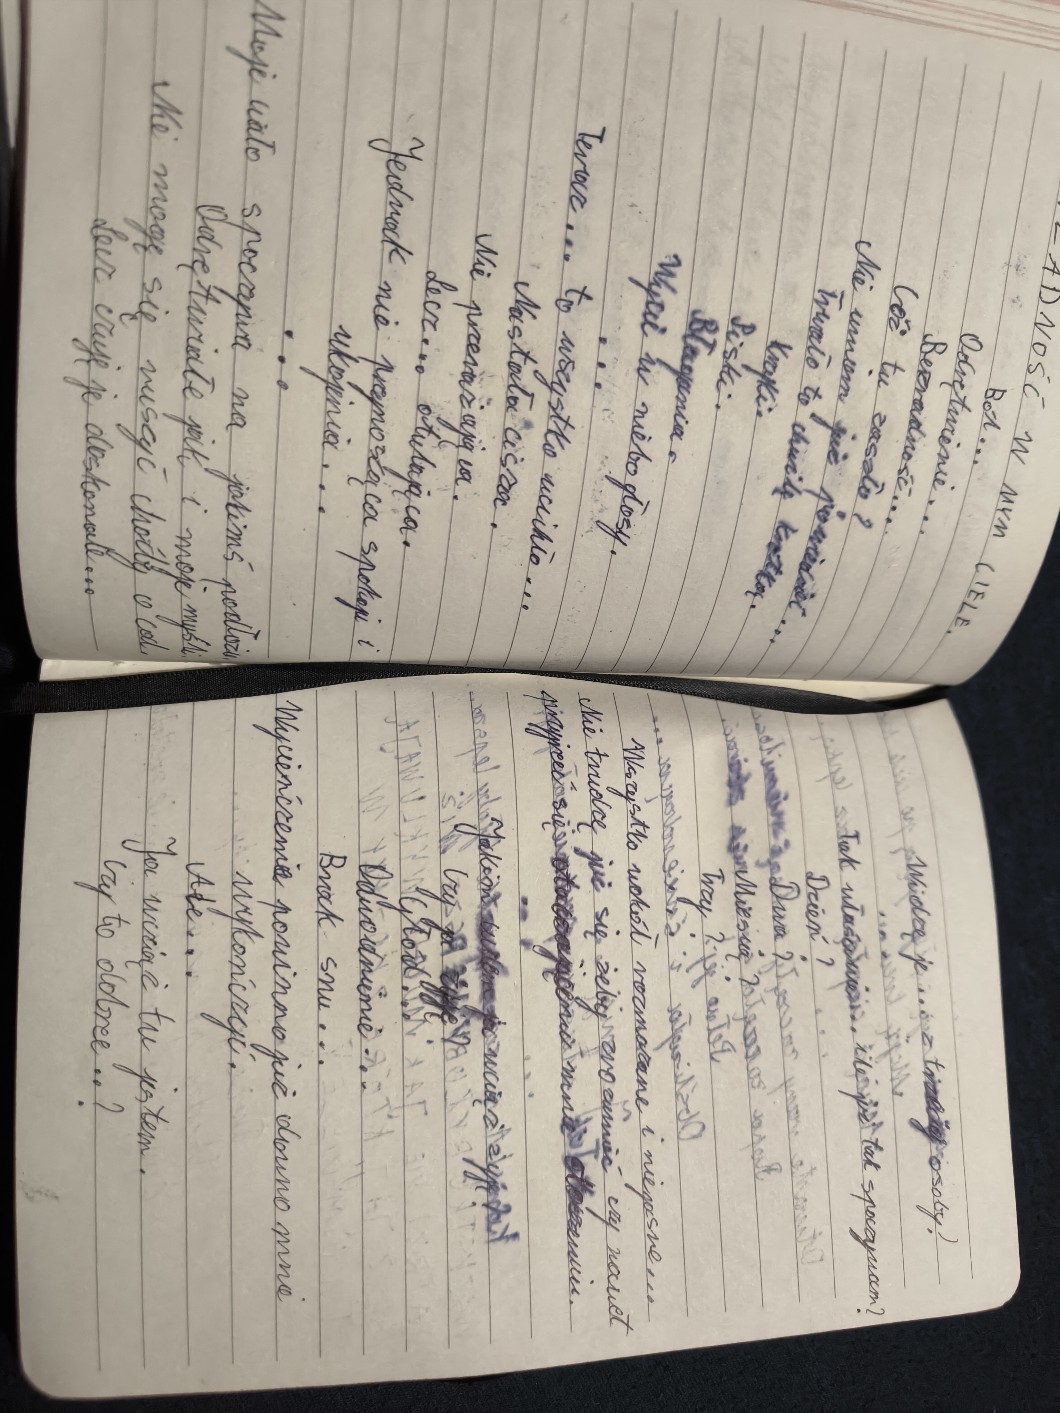 ŻADNOŚĆ W MYM CIELE.
Ból...
Odrętwienie...
Bezradność...
Cóż tu zaszło?
Nie umiem już powiedzieć...
Trwało to chwilę krótką.
Krzyki.
Piski.
Błagania.
Wycie w niebogłosy.
...
Teraz... to wszystko ucichło...
Nastała cisza.
Nie przerażająca.
Lecz... otulająca.
Jednak nie przynosząca spokoju i
ukojenia...
...
Moje ciało spoczywa na jakimś podłożu
Odrętwiałe jak i moje myśli.
Nie mogę się ruszyć choćby o cal
Lecz czuję je doskonale...
Widzę je... trzy osoby?
...
Tak właściwie... ile już tak spoczywam?
Dzień?
Dwa?
Miesiąc?
Trzy?
Wszystko wokół rozmazane i niejasne...
Nie trudzę już się żeby zrozumieć czy nawet
przyjrzeć się otaczającemu mnie otoczeniu.
...
Jakim cudem ja wciąż żyję?
Czy ja żyję?
Głód...
Odwodnienie...
Brak snu...
Wycieńczenie powinno już dawno mnie
wykończyć.
Ale...
Ja wciąż tu jestem.
Czy to dobrze..?